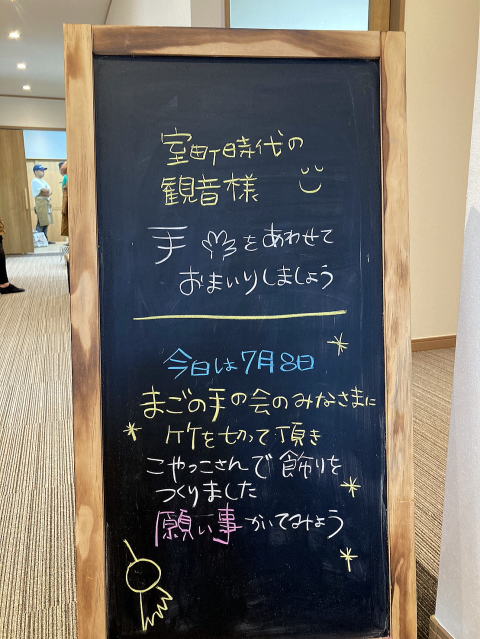 室町時代の
観音様
手をあわせて
おまいりしましょう
今日は7月8日
まごの手の会のみなさまに
竹を切って頂き
こやっこさんで飾りを
つくりました
願い事かいてみよう